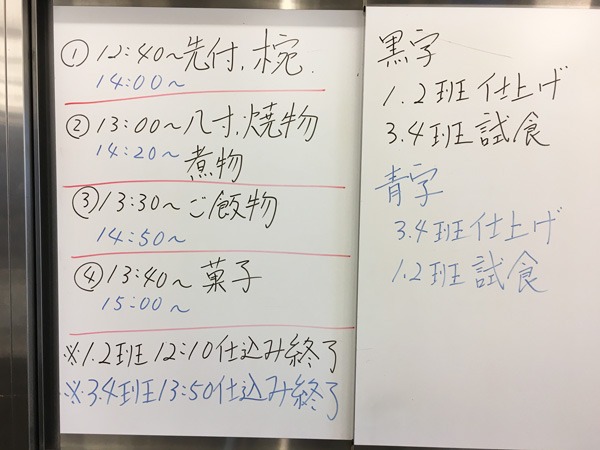 ①12:40〜先付.椀.
14:00〜
②13:00〜八寸.焼物
14:20〜煮物
③13:30〜ご飯物
14:50〜
④13:40〜菓子
15:00〜
※1.2班12:10仕込み終了
※3.4班13:50仕込み終了
黒字
1.2班仕上げ
3.4班試食
青字
3.4班仕上げ
1.2班試食